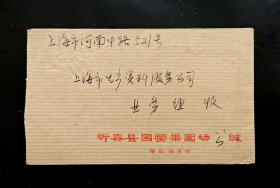 上海市河南中路521号
上海市生产资料服务公司
业务组 收
蕲春县国营果园场 缄